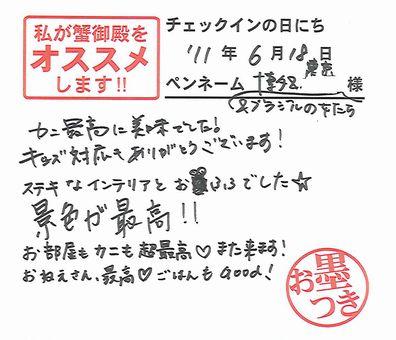 私が蟹御殿を
オススメ
します!!
チェックインの日にち
'11 年 6 月 18 日
ペンネーム 東京 様
&ブラジルの女たち
カニ最高に美味でした!
キッズ対応もありがとうございます!
ステキなインテリアとおふろでした☆
景色が最高!!
お部屋もカニも超最高♡また来ます!
おねえさん、最高♡ごはんもGood!
お墨つき